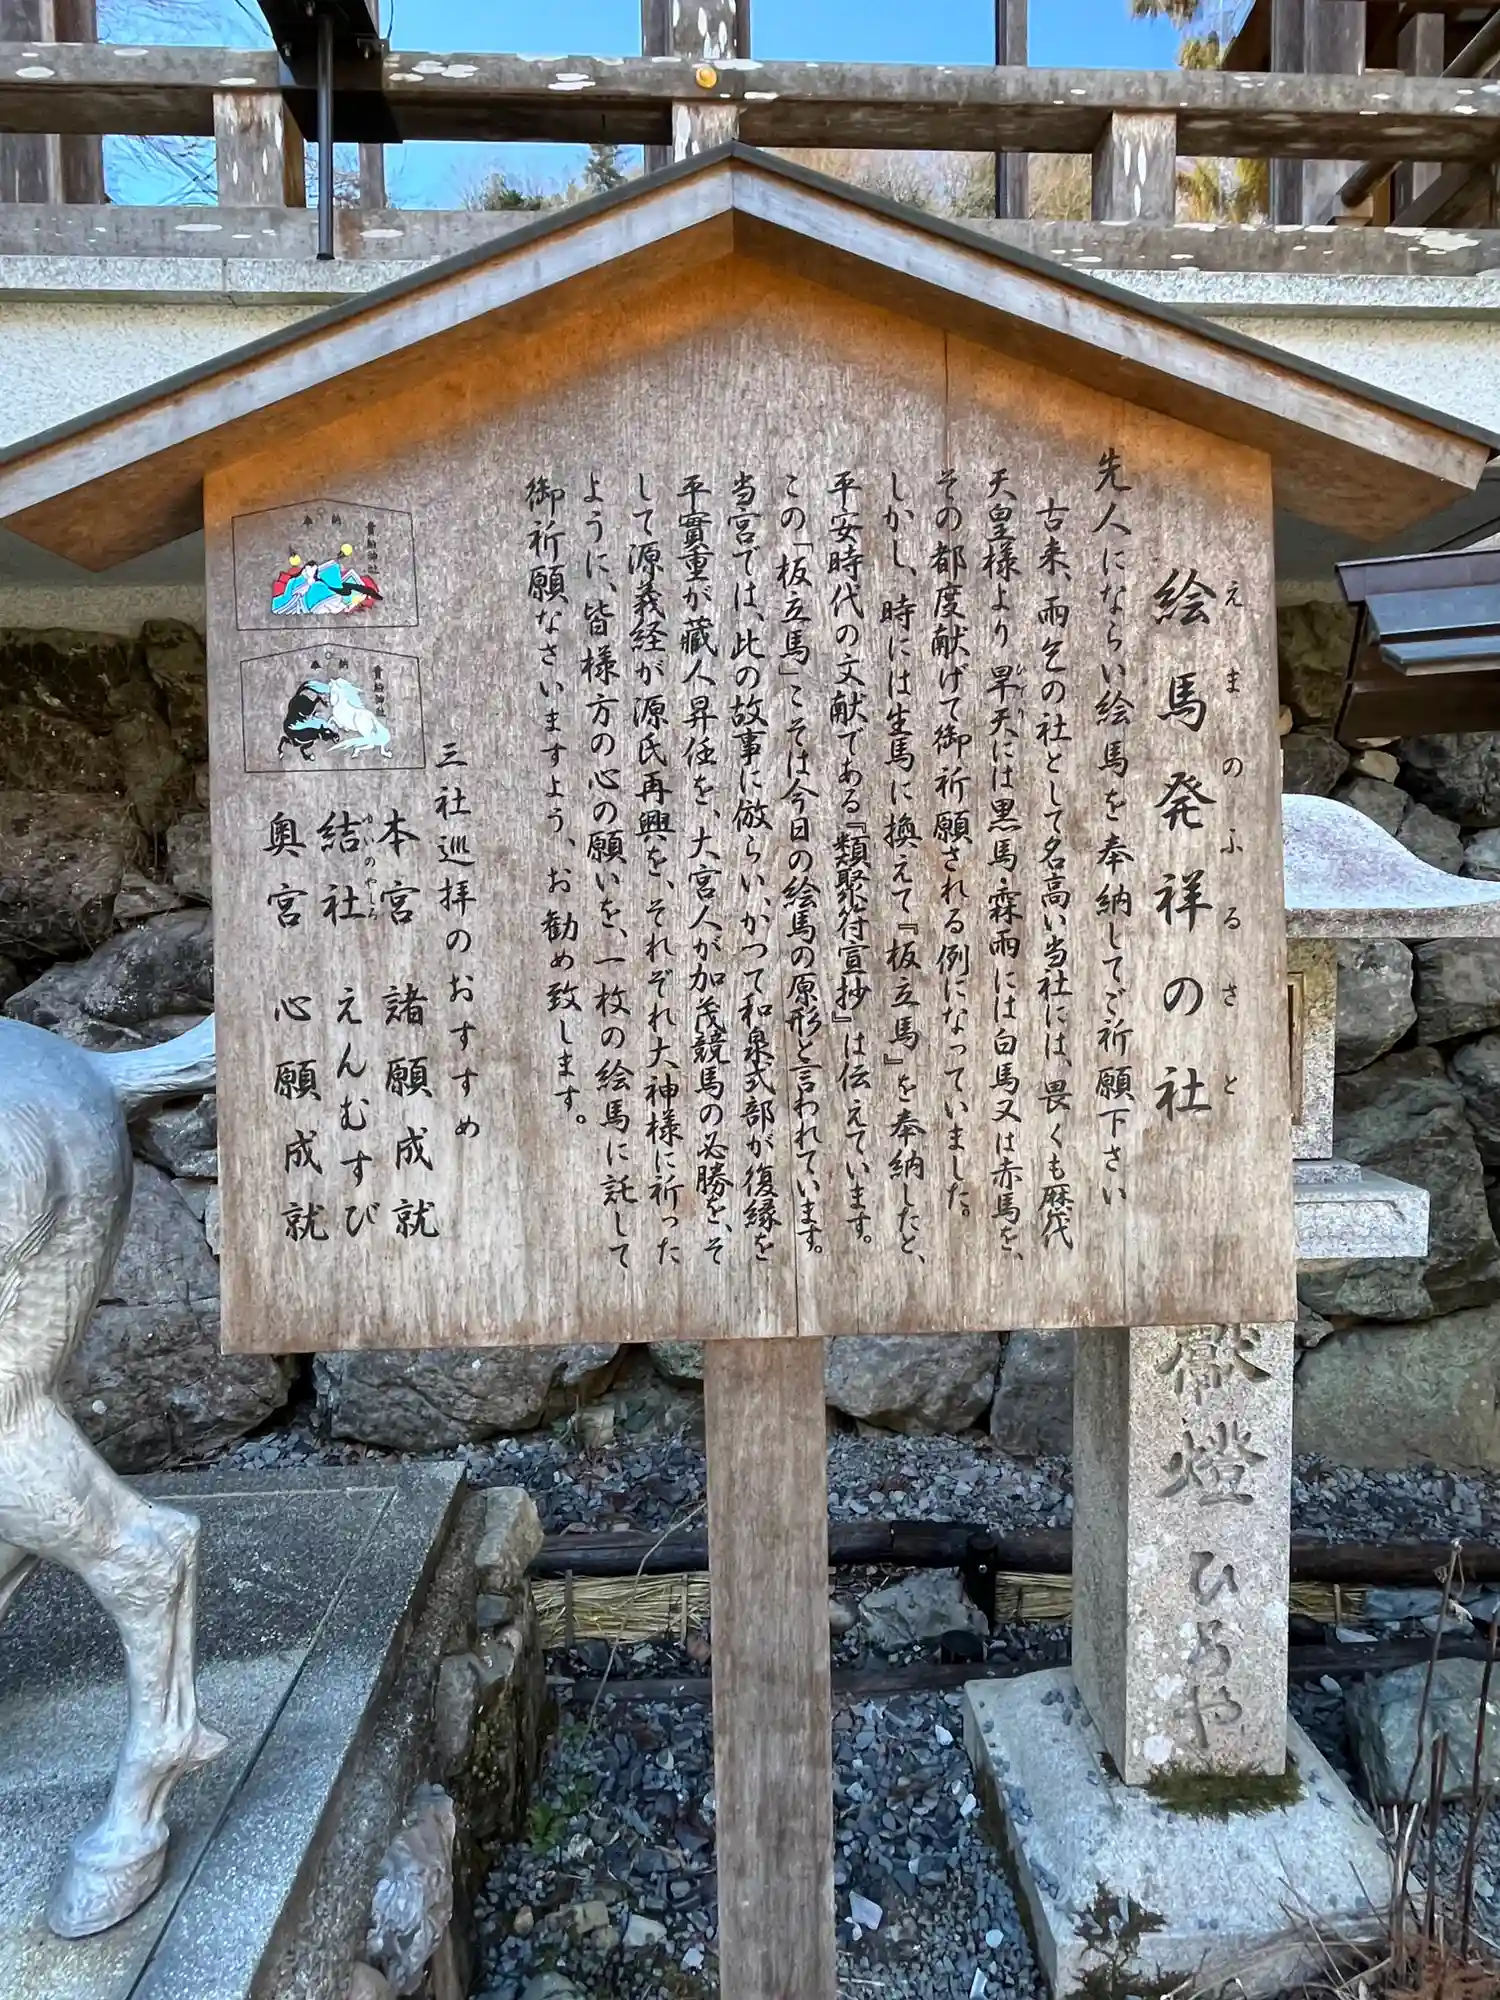 えまのふるさと
絵馬発祥の社
先人にならい絵馬を奉納してご祈願下さい
古来、雨乞の社として名高い当社には、畏くも歴代
天皇様より旱天には黒馬・霖雨には白馬又は赤馬を、
その都度献げて御祈願される例になっていました。
しかし、時には生馬に換えて『板立馬』を奉納したと、
平安時代の文献である『類聚符宣抄』は伝えています。
この「板立馬」こそは今日の絵馬の原形と言われています。
当宮では、此の故事に倣らい、かつて和泉式部が復縁を
平實重が蔵人昇任を、大宮人が加茂競馬の必勝を、そ
して源義経が源氏再興を、それぞれ大神様に祈った
ように、皆様方の心の願いを、一枚の絵馬に託して
御祈願なさいますよう、お勧め致します。
三社巡拝のおすすめ
本宮 諸願成就
ゆいのやしろ
結社 えんむすび
奥宮 心願成就
貴船神社
奉納
貴船神社
奉納
献燈ひろや